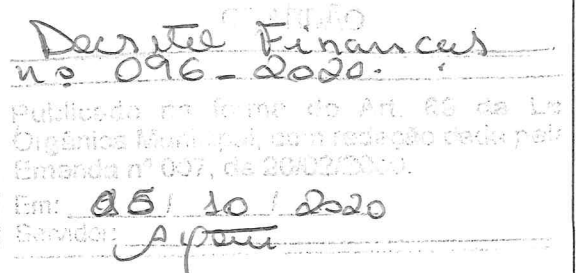 Decreto Finanças
nº 096-2020.
Publicado na forma do Art. 69 da Le
Orgânica Municipal, com redação dada pela
Emenda nº 007, de 20/03/2000.
Em: 05/ 10 / 2020
Servidor: